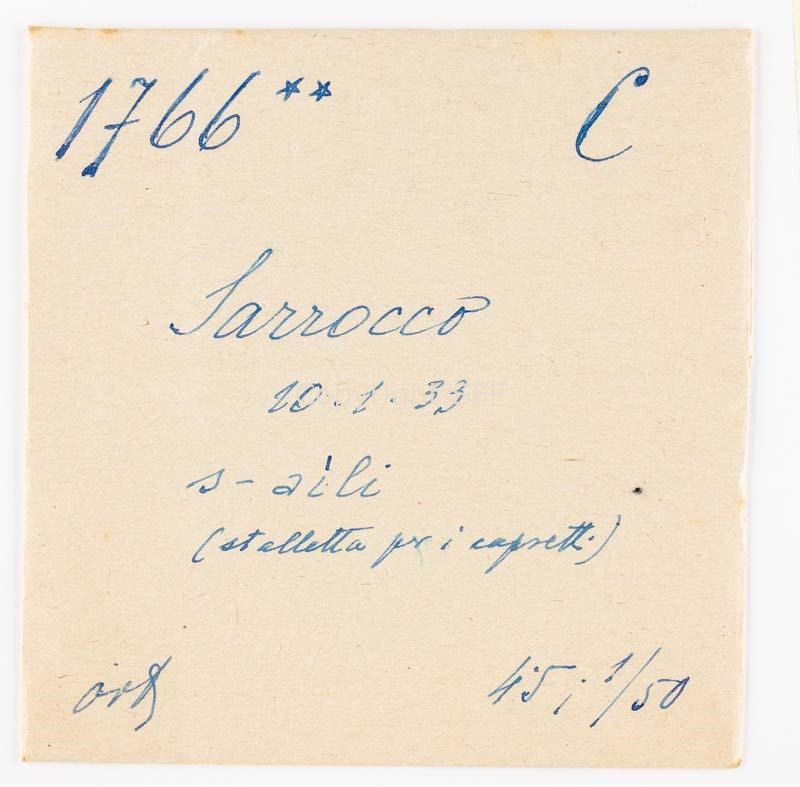 1766** C
Sarrocco
10.1.33
s-aìli
(stalletta per i capretti)
45; 1/50